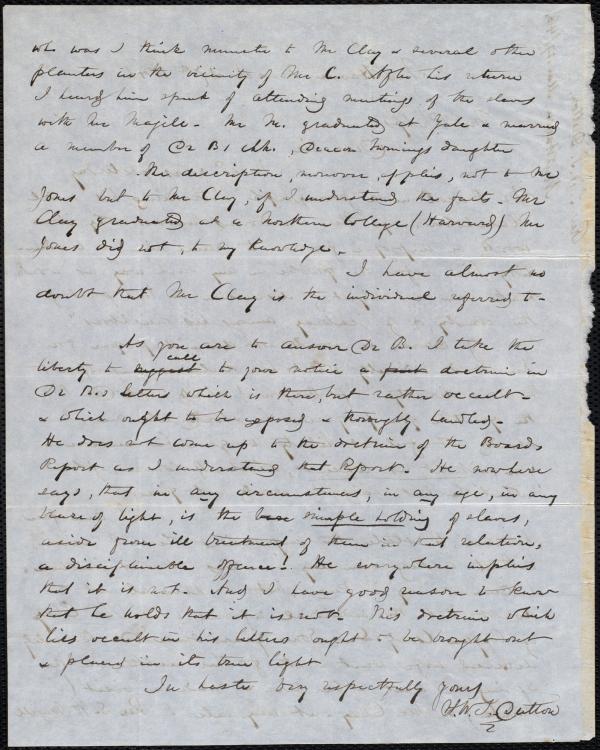 who was I think minister to Mr Clay & several other
planters in the vicinity of Mr C. After his return
I heard him speak of attending meetings of the slaves
with Mr Magill - Mr M. graduated at Yale & married
a member of Dr B's chh., Deacon daughter
The description, moreover, applies, not to Mr
Jones but to Mr Clay, if I understand the facts - Mr
Clay graduated at a Northern College (Harvard) Mr
Jones did not, to my knowledge.
I have almost no
doubt that Mr Clay is the individual referred to -
As you are to answer Dr B. I take the
liberty to suggest call to your notice a point doctrine in
Dr B.s letter which is there, but rather occult -
& which ought to be exposed & thoroughly handled -
He does not come up to the doctrine of the Boards
Report as I understand that Report - He nowhere
says, that in any circumstances, in any age, in any
blaze of light, is the bare simple holding of slaves,
aside from ill treatment of them in that relation,
a disciplinable offence. He everywhere implies
that it is not. And I have good reason to know
that he holds that it is not. This doctrine which
lies occult in his letters ought to be brought out
& placed in its true light
In haste very respectfully yours
S. W. S. Dutton